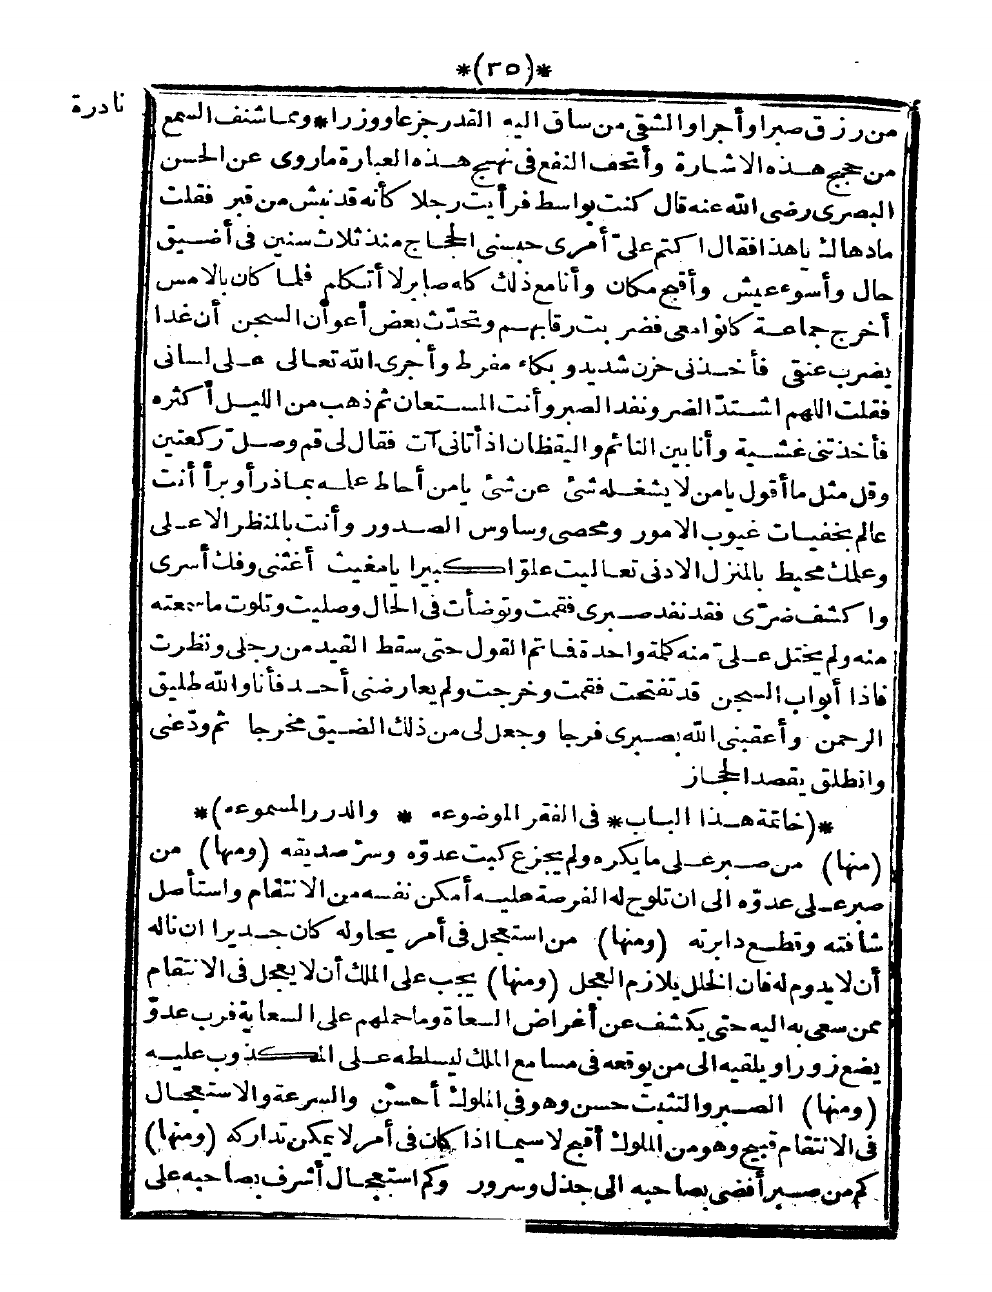 *(٣٥)*
نادرة
من رزق صبرا وأجرا والشقى من ساق اليه القدر جزعا ووزرا * ومما شنف السمع
من حجج هذه الاشارة وأتحف النفع فى نهج هذه العبارة ماروى عن الحسن
البصرى رضى الله عنه قال كنت بواسط فرأيت رجلا كأنه قد نبش من قبر فقلت
مادهاك ياهذا فقال اكتم على أمرى حبسنى الحجاج منذ ثلاث سنين فى أضيق
حال وأسوء عيش وأقبح مكان وأنا مع ذلك كله صابر لا أتكلم فلما كان بالامس
أخرج جماعة كانوا معى فضربت رقابهم وتحدّث بعض أعوان السجن أن غدا
يضرب عنقى فأخذنى حزن شديد وبكاء مفرط وأجرى الله تعالى على لسانى
فقلت اللهم اشتدّ الضر ونفد الصبر وأنت المستعان ثم ذهب من الليل أكثره
فأخذتنى غشية وأنا بين النائم واليقظان اذ أتانى آت فقال لى قم وصلّ ركعتين
وقل مثل ما أقول يامن لا يشغله شئ عن شئ يامن أحاط علمه بما ذرأ وبرأ أنت
عالم بخفيات غيوب الامور ومحصى وساوس الصدور وأنت بالمنظر الاعلى
وعلمك محيط بالمنزل الادنى تعاليت علوّا كبيرا يامغيث أغثنى وفك أسرى
واكشف ضرّى فقد نفد صبرى فقمت وتوضأت فى الحال وصليت وتلوت ما سمعته
منه ولم يختل علىّ منه كلمة واحدة فما تم القول حتى سقط القيد من رجلى ونظرت
فاذا أبواب السجن قد تفتحت فقمت وخرجت ولم يعارضنى أحد فأنا والله طليق
الرحمن وأعقبنى الله بصبرى فرجا وجعل لى من ذلك الضيق مخرجا ثم ودّعنى
وانطلق يقصد الحجاز
*(خاتمة هذا الباب * فى الفقر الموضوعه * والدرر المسموعه)*
(منها) من صبر على ما يكره ولم يجزع كبت عدوّه وسرّ صديقه (ومنها) من
صبر على عدوّه الى ان تلوح له الفرصة عليه أمكن نفسه من الانتقام واستأصل
شأفته وقطع دابرته (ومنها) من استعجل فى أمر يحاوله كان جديرا ان ناله
أن لا يدوم له فان الخلل يلازم العجل (ومنها) يجب على الملك أن لا يعجل فى الانتقام
ممن سعى به اليه حتى يكشف عن أغراض السعاة وما حملهم على السعاية فرب عدوّ
يضع زورا ويلقيه الى من يوقعه فى مسامع الملك ليسلطه على المكذوب عليه
(ومنها) الصبر والتثبت حسن وهو فى الملوك أحسن والسرعة والاستعجال
فى الانتقام قبيح وهو من الملوك أقبح لا سيما اذا كان فى أمر لا يمكن تداركه (ومنها)
كم من صبر أفضى بصاحبه الى جذل وسرور وكم استعجال أشرف بصاحبه على